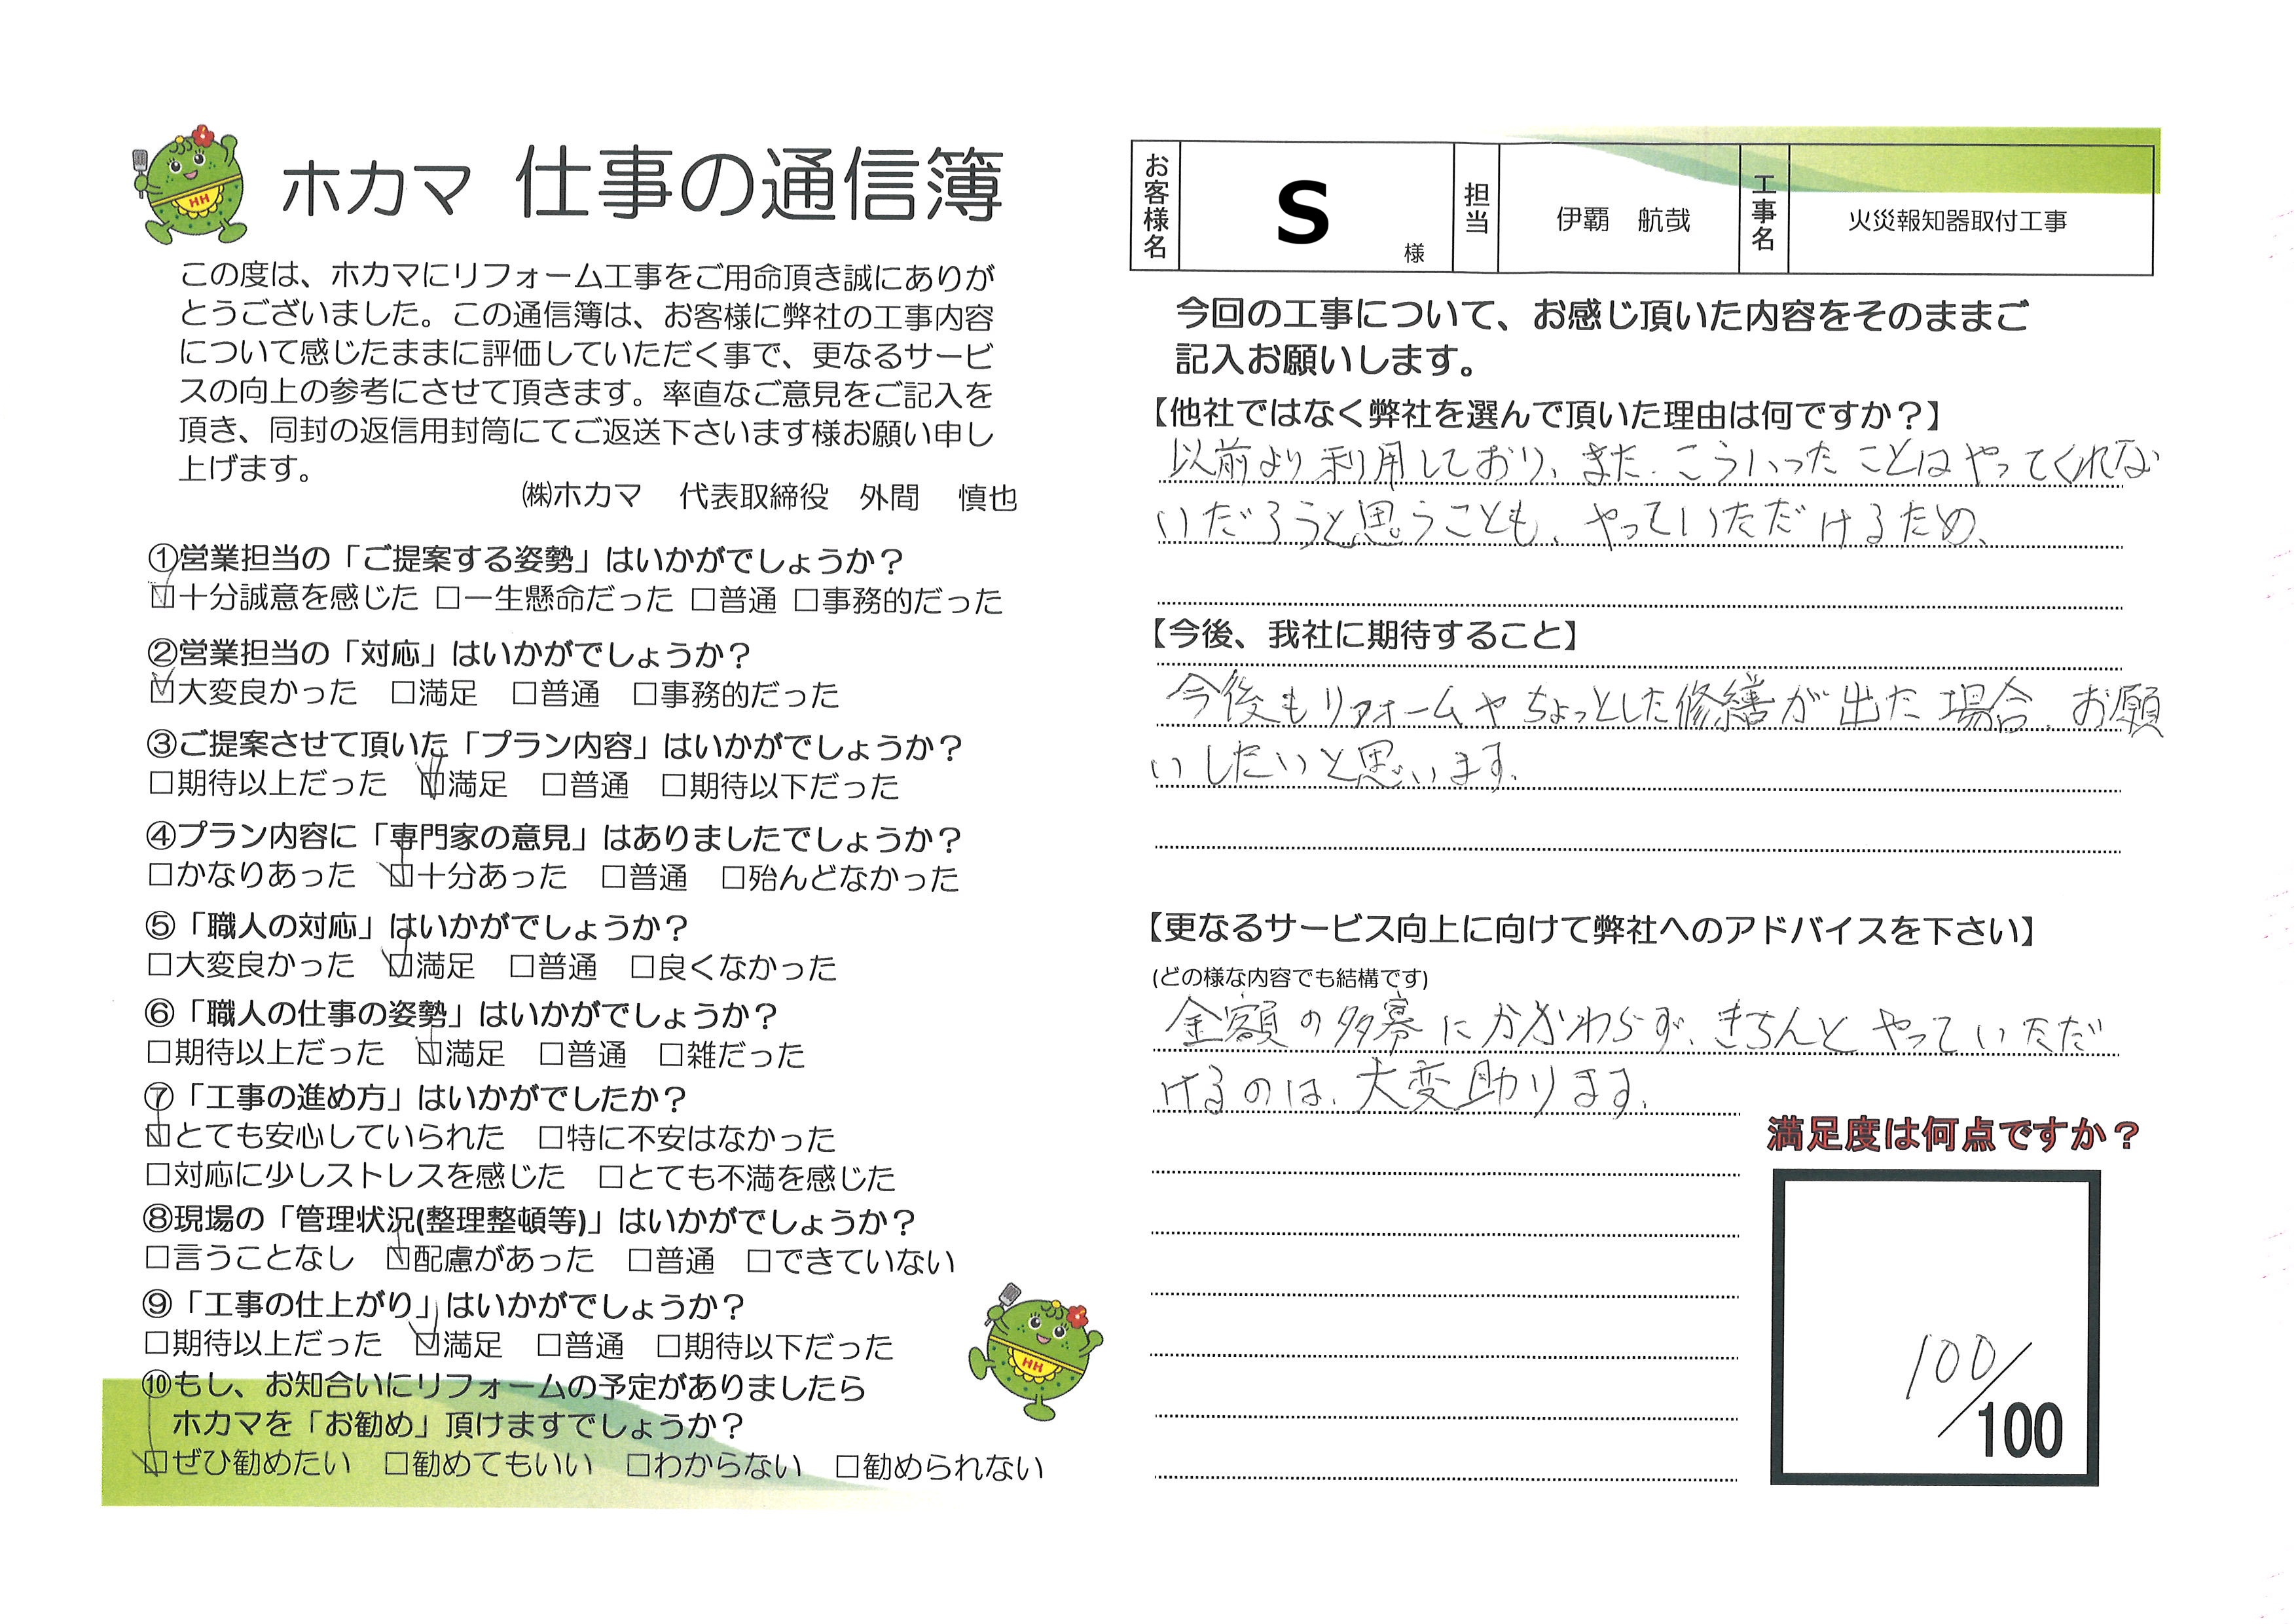 ホカマ 仕事の通信簿
この度は、ホカマにリフォーム工事をご用命頂き誠にありが
とうございました。この通信簿は、お客様に弊社の工事内容
について感じたままに評価していただく事で、更なるサービ
スの向上の参考にさせて頂きます。率直なご意見をご記入を
頂き、同封の返信用封筒にてご返送下さいます様お願い申し
上げます。
㈱ホカマ 代表取締役 外間 慎也
①営業担当の「ご提案する姿勢」はいかがでしょうか？
☑十分誠意を感じた □一生懸命だった □普通 □事務的だった
②営業担当の「対応」はいかがでしょうか？
☑大変良かった □満足 □普通 □事務的だった
③ご提案させて頂いた「プラン内容」はいかがでしょうか？
□期待以上だった ☑満足 □普通 □期待以下だった
④プラン内容に「専門家の意見」はありましたでしょうか？
□かなりあった ☑十分あった □普通 □殆んどなかった
⑤「職人の対応」はいかがでしょうか？
□大変良かった ☑満足 □普通 □良くなかった
⑥「職人の仕事の姿勢」はいかがでしょうか？
□期待以上だった ☑満足 □普通 □雑だった
⑦「工事の進め方」はいかがでしたか？
☑とても安心していられた □特に不安はなかった
□対応に少しストレスを感じた □とても不満を感じた
⑧現場の「管理状況(整理整頓等)」はいかがでしょうか？
□言うことなし ☑配慮があった □普通 □できていない
⑨「工事の仕上がり」はいかがでしょうか？
□期待以上だった ☑満足 □普通 □期待以下だった
⑩もし、お知合いにリフォームの予定がありましたら
ホカマを「お勧め」頂けますでしょうか？
☑ぜひ勧めたい □勧めてもいい □わからない □勧められない
HH
HH
お客様名 S 様 担当 伊覇 航哉 工事名 火災報知器取付工事
今回の工事について、お感じ頂いた内容をそのままご
記入お願いします。
【他社ではなく弊社を選んで頂いた理由は何ですか？】
以前より利用しており、また、こういったことはやってくれな
いだろうと思うことも、やっていただけるため、
【今後、我社に期待すること】
今後もリフォームやちょっとした修繕が出た場合、お願
いしたいと思います。
【更なるサービス向上に向けて弊社へのアドバイスを下さい】
(どの様な内容でも結構です)
金額の多寡にかかわらず、きちんとやっていただ
けるのは、大変助ります。
満足度は何点ですか？
100/100